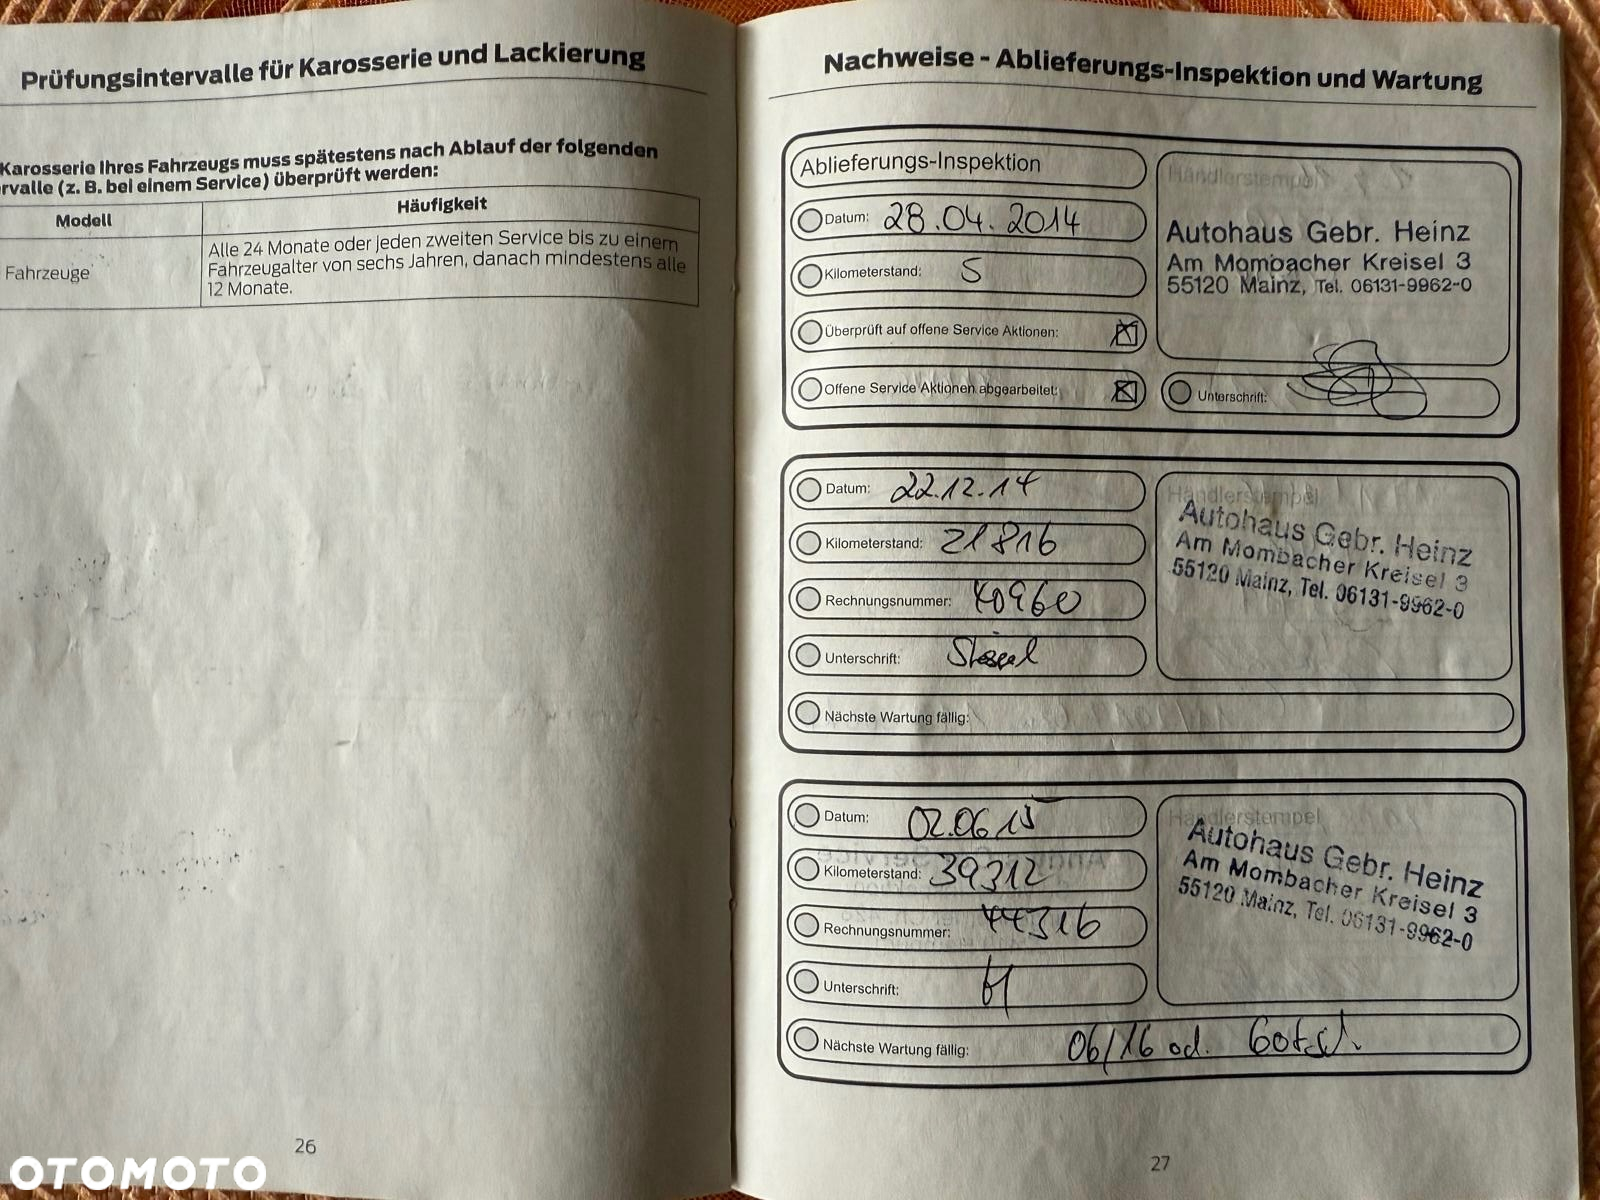 Prüfungsintervalle für Karosserie und Lackierung
Karosserie Ihres Fahrzeugs muss spätestens nach Ablauf der folgenden
rvalle (z. B. bei einem Service) überprüft werden:
Modell
Häufigkeit
Fahrzeuge
Alle 24 Monate oder jeden zweiten Service bis zu einem
Fahrzeugalter von sechs Jahren, danach mindestens alle
12 Monate.
26
Nachweise - Ablieferungs-Inspektion und Wartung
Ablieferungs-Inspektion
Datum: 28.04.2014
Kilometerstand: 5
Überprüft auf offene Service Aktionen:
Offene Service Aktionen abgearbeitet:
Händlerstempel
Autohaus Gebr. Heinz
Am Mombacher Kreisel 3
55120 Mainz, Tel. 06131-9962-0
Unterschrift:
Datum: 22.12.14
Kilometerstand: 21816
Rechnungsnummer: 40960
Unterschrift:
Nächste Wartung fällig:
Händlerstempel
Autohaus Gebr. Heinz
Am Mombacher Kreisel 3
55120 Mainz, Tel. 06131-9962-0
Datum: 02.06.15
Kilometerstand: 39312
Rechnungsnummer: 44316
Unterschrift:
Nächste Wartung fällig: 06/16 od. 60tsd.
Händlerstempel
Autohaus Gebr. Heinz
Am Mombacher Kreisel 3
55120 Mainz, Tel. 06131-9962-0
27
OTOMOTO